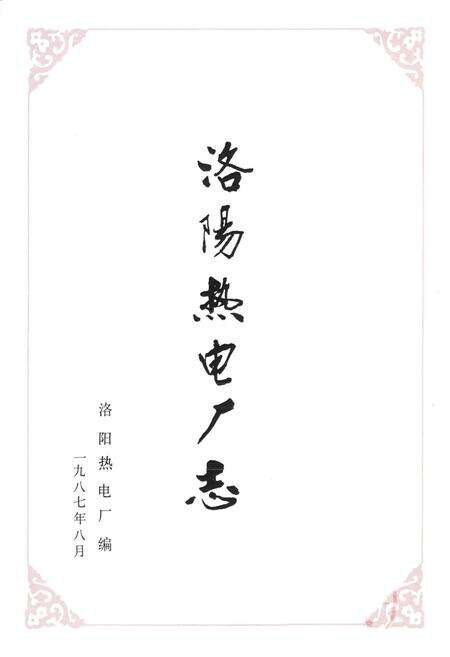 洛陽热电厂志
洛阳热电厂编
一九八七年八月